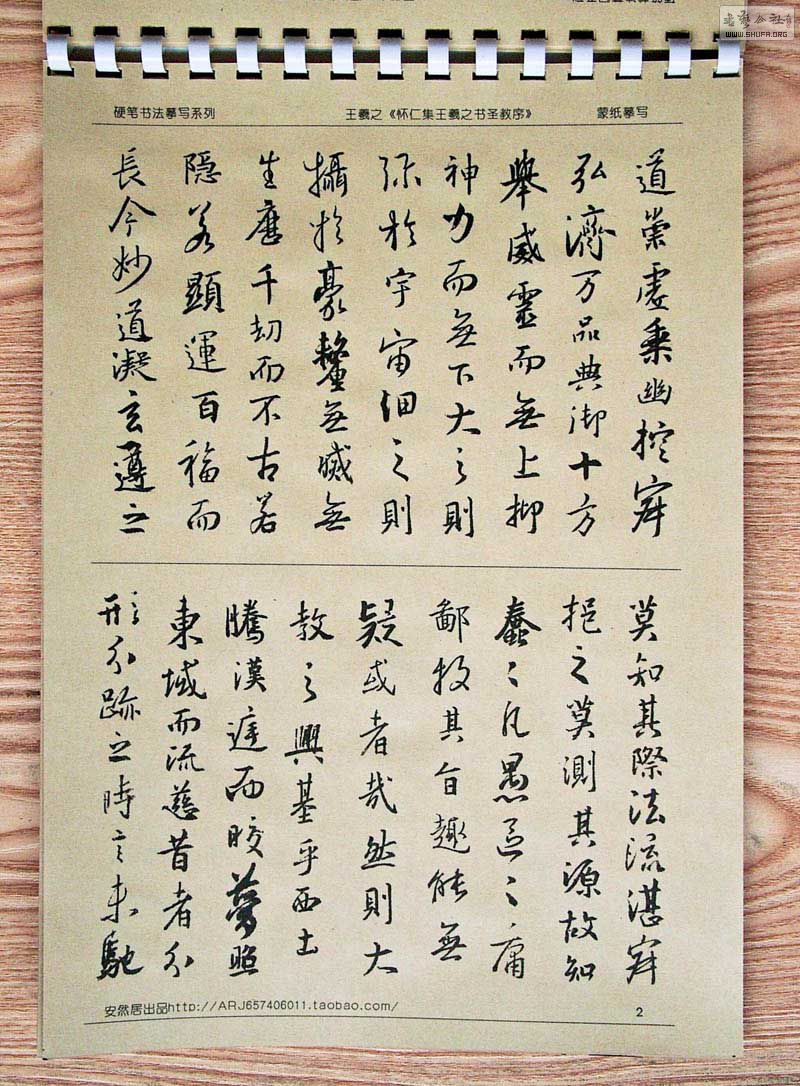 書藝公社
WWW.SHUFA.ORG
硬笔书法摹写系列 王羲之《怀仁集王羲之书圣教序》 蒙纸摹写
道崇虚乘幽控寂
弘濟万品典御十方
舉威靈而無上抑
神力而無下大之則
弥於宇宙細之則
攝於豪釐無滅無
生歷千劫而不古若
隱若顯運百福而
長今妙道凝玄遵之
莫知其際法流湛寂
挹之莫測其源故知
蠢〻凡愚區〻庸
鄙投其旨趣能無
疑或者哉然則大
教之興基乎西土
騰漢庭而皎夢照
東域而流慈昔者分
形分跡之時言未馳
安然居出品http://ARJ657406011.taobao.com/ 2